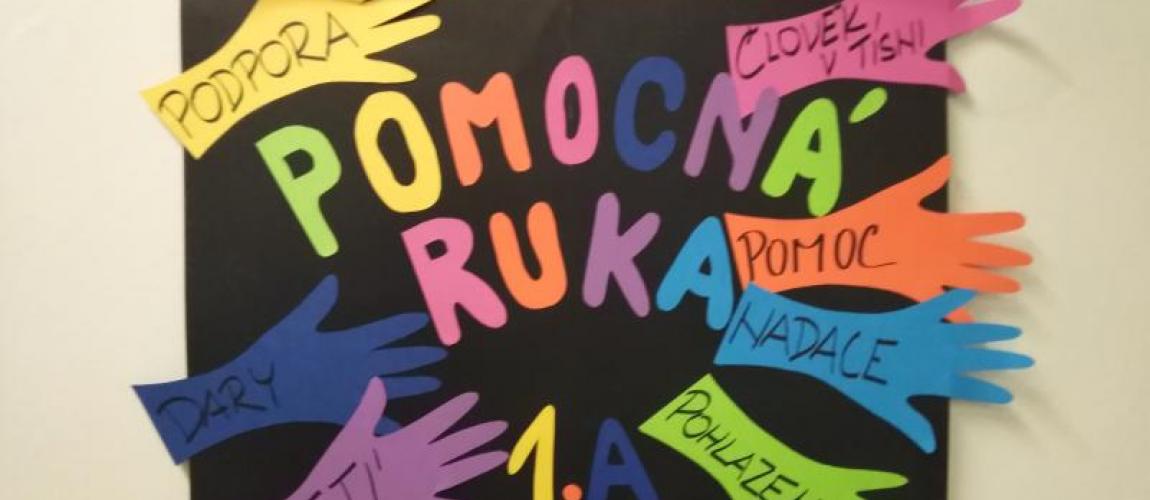 PODPORA
ČLOVĚK
V TÍSNI
POMOCNÁ
RUKA
POMOC
NADACE
DARY
1.A